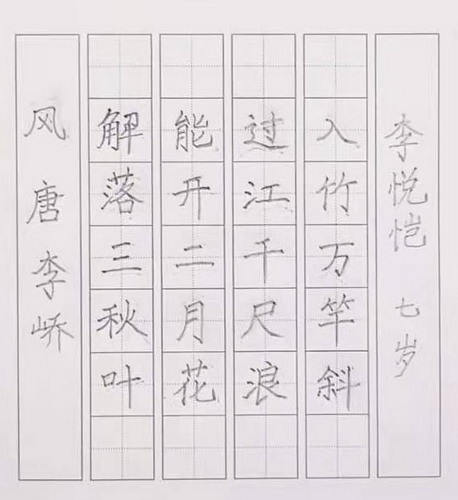 风 唐 李峤
解落三秋叶
能开二月花
过江千尺浪
入竹万竿斜
李悦恺 七岁